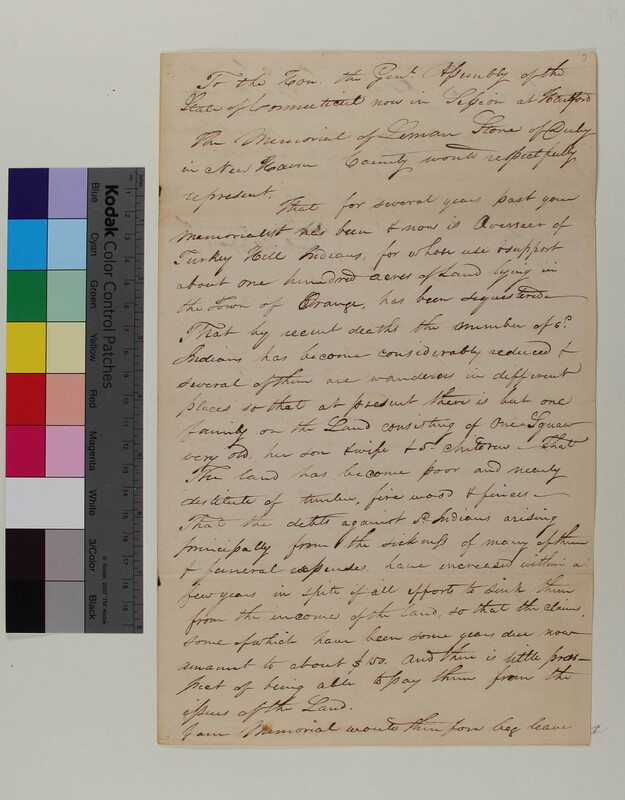 To the Hon. the Genl. Assembly of the
State of Connecticut now in Session at Hartford
The Memorial of Leman Stone of Derby
in New Haven County would respectfully
represent.
That for several years past your
memorialist has been & now is Overseer of
Turkey Hill Indians, for whose use & support
about one hundred acres of Land lying in
the Town of Orange, has been sequestered—
That by recent deaths the number of sd.
Indians has become considerably reduced &
several of them are wanderers in different
places so that at present there is but one
family on the Land consisting of One Squaw
very old, her son & wife & 5 children— That
The land has become poor and nearly
destitute of timber, fire wood & fences—
That the debts against sd. Indians arising
principally from the sickness of many of them
& funeral expenses have increased within a
few years in spite of all efforts to sink them
from the income of the land, so that the claims,
some of which have been some years due now
amount to about $150. And there is little pros-
pect of being able to pay them from the
issues of the Land.
Your Memorial would therefore beg leave
Kodak Color Control Patches
Blue Cyan Green Yellow Red Magenta White 3/Color Black
© Kodak, 2007 TM: Kodak